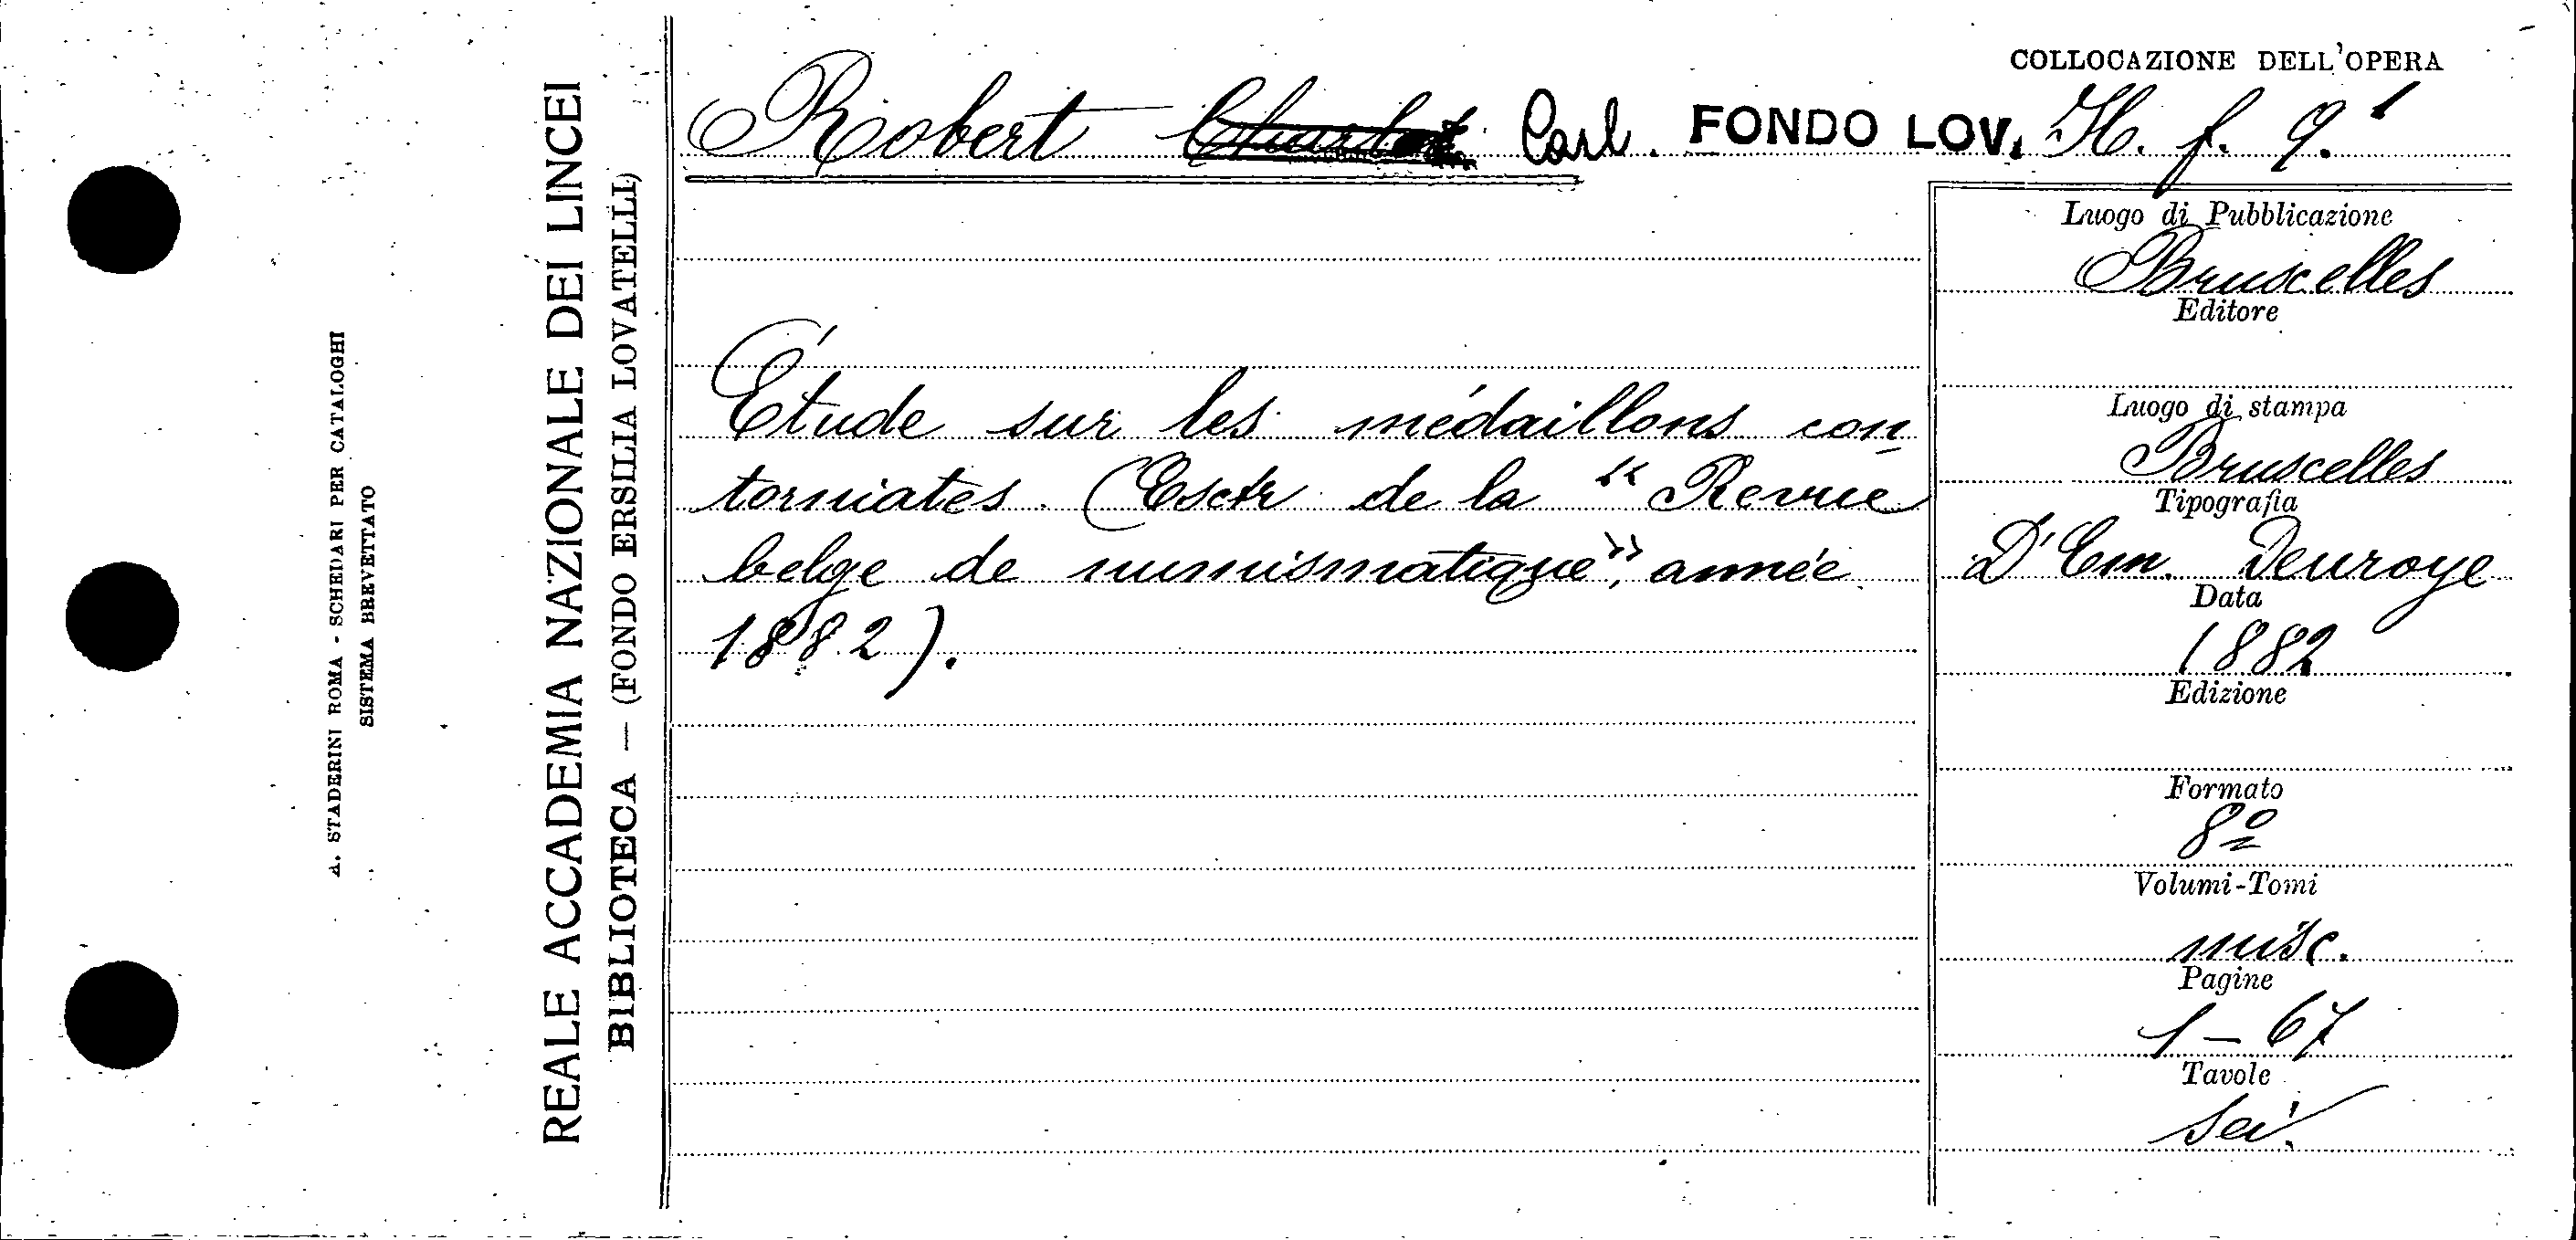 COLLOCAZIONE DELL'OPERA
Robert Carl. FONDO LOV. H. f. 9.1
Étude sur les médaillons con-
torniates. (Extr. de la "Revue
belge de numismatique", année
1882).
Luogo di Pubblicazione
Bruxelles
Editore
Luogo di stampa
Bruxelles
Tipografia
D'Em. Devroye
Data
1882
Edizione
Formato
8º
Volumi-Tomi
misc.
Pagine
1-67
Tavole
sei.
REALE ACCADEMIA NAZIONALE DEI LINCEI
BIBLIOTECA — (FONDO ERSILIA LOVATELLI)
A. STADERINI ROMA - SCHEDARI PER CATALOGHI
SISTEMA BREVETTATO